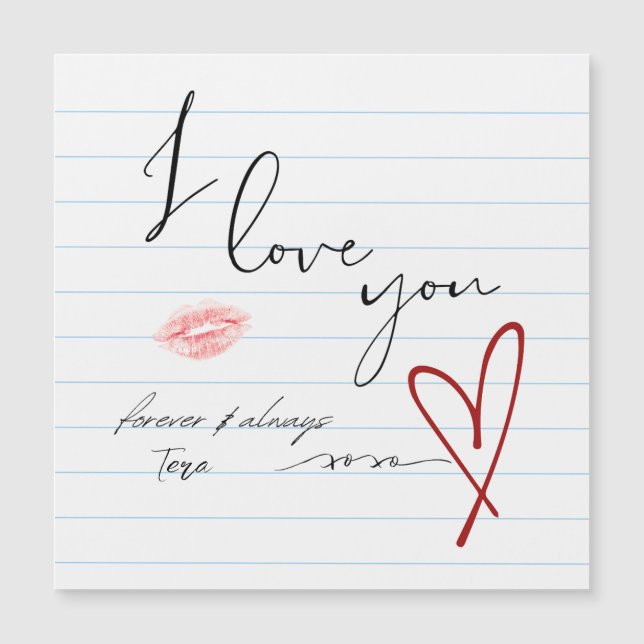 I
love
you
forever & always
Tera xoxo